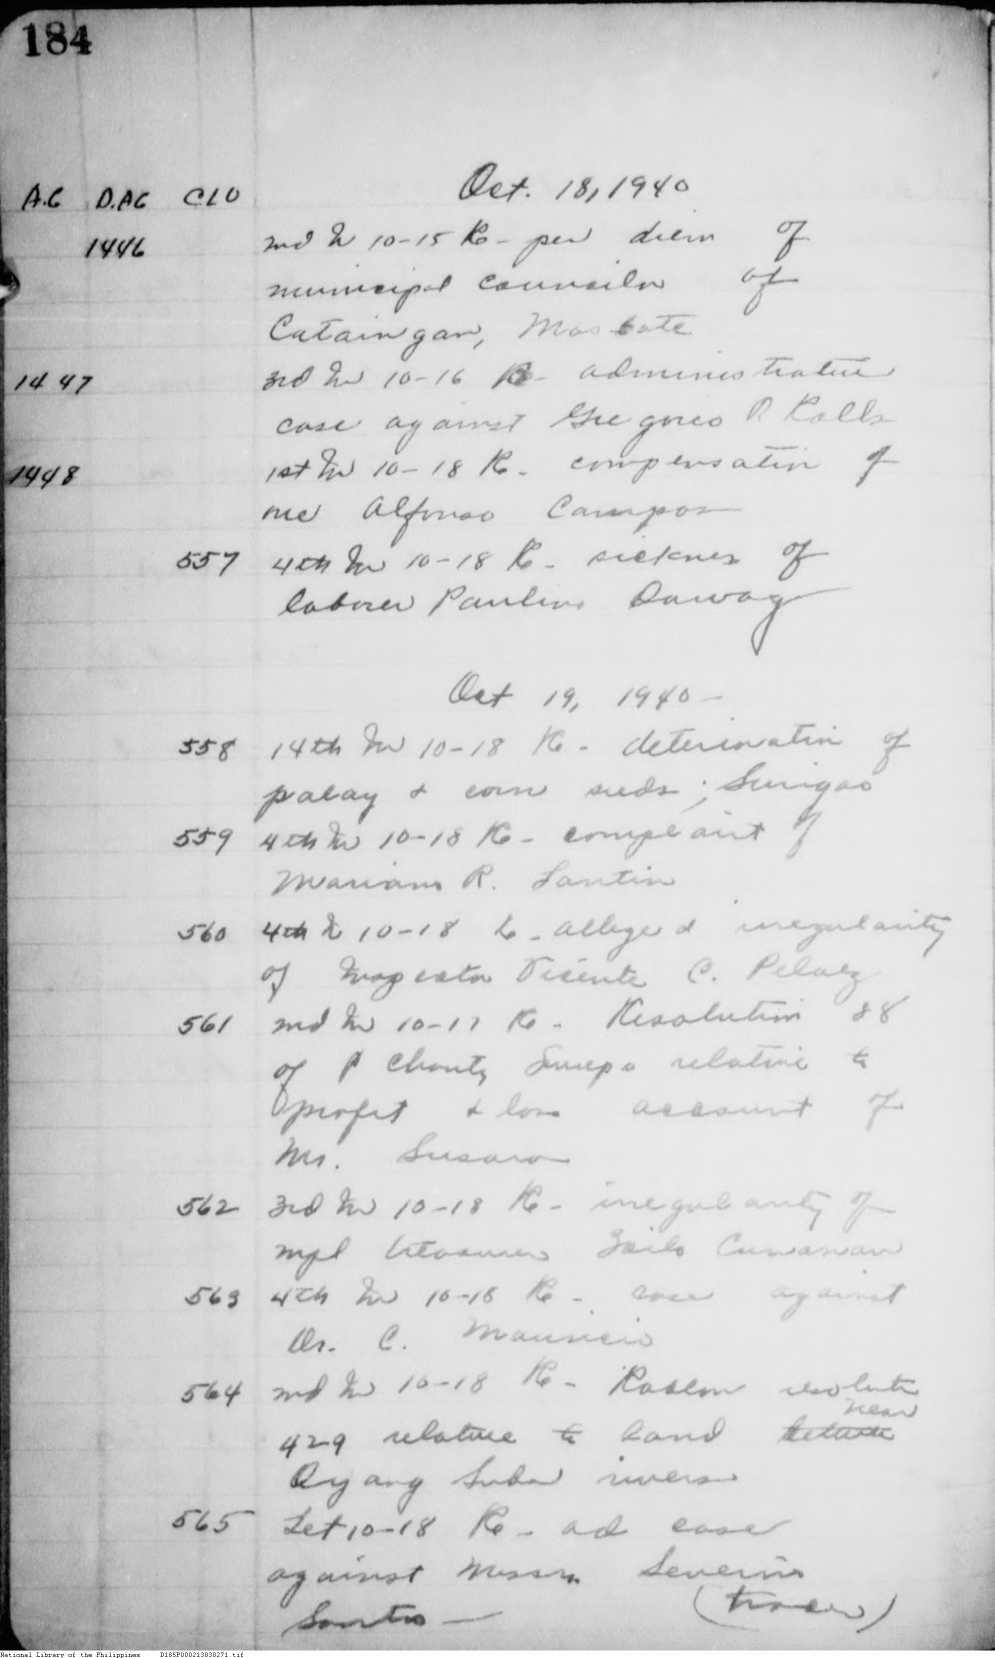 184
Oct. 18, 1940
A.G D.AG CLO
1446 2nd In 10-15 Re - per diem of
municipal councilor of
Cataingan, Masbate
1447 3rd In 10-16 Re - administrative
case against Gregorio R
1448 1st In 10-18 Re - compensation of
one Alfonso Campos
557 4th In 10-18 Re - sickness of
laborer Paulino Dawag
Oct 19, 1940 -
558 14th In 10-18 Re - deterioration of
palay & corn seeds ; Surigao
559 4th In 10-18 Re - complaint of
Mariano R. Santin
560 4th In 10-18 Re - alleged irregularity
of Inspector Vicente C. Pelaez
561 2nd In 10-17 Re - Resolution 88
of P relative to
profit & loss account of
Mr. Susano
562 3rd In 10-18 Re - irregularity of
mpl treasurer Cunanan
563 4th In 10-18 Re - case against
Dr. C. Mauricio
564 2nd In 10-18 Re - resolution
near
429 relative to land
Ayang Suba rivers
565 Let 10-18 Re - ad case
against Messrs. Severino
Santos -
National Library of the Philippines D185P000213838271.tif